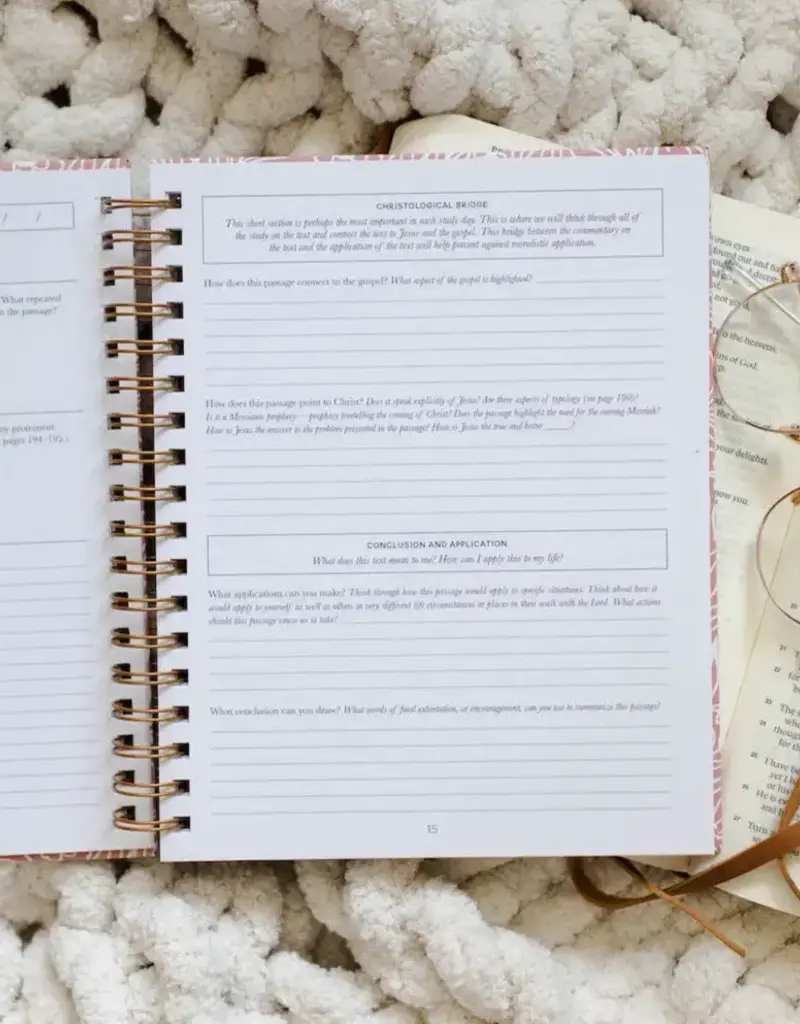 / /
What repeated
n the passage?
pages 194–195.
CHRISTOLOGICAL BRIDGE
This short section is perhaps the most important in each study day. This is where we will think through all of
the study on the text and connect the text to Jesus and the gospel. This bridge between the commentary on
the text and the application of the text will help prevent against moralistic application.
How does this passage connect to the gospel? What aspect of the gospel is highlighted?
How does this passage point to Christ? Does it speak explicitly of Jesus? Are there aspects of typology (see page 190)?
Is it a Messianic prophecy — prophecy foretelling the coming of Christ? Does the passage highlight the need for the coming Messiah?
How is Jesus the answer to the problem presented in the passage? How is Jesus the true and better ____?
CONCLUSION AND APPLICATION
What does this text mean to me? How can I apply this to my life?
What applications can you make? Think through how this passage would apply to specific situations. Think about how it
would apply to yourself as well as others in very different life circumstances or places in their walk with the Lord. What actions
should this passage cause us to take?
What conclusion can you draw? What words of final exhortation, or encouragement, can you use to summarize this passage?
15
own eyes
found out and
not good,
the heavens,
ns of God.
your delights.
now you.
The
thoug
for th
I have
yet I
or his
He is
and
Turn